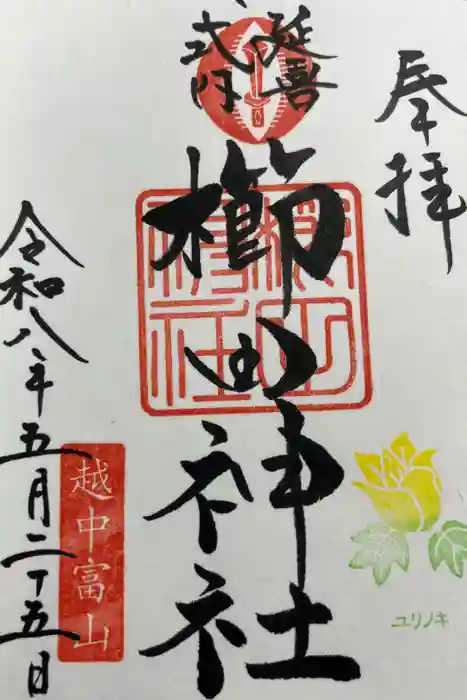 奉拝
延喜
式内
櫛田神社
令和八年五月二十五日
越中富山
ユリノキ